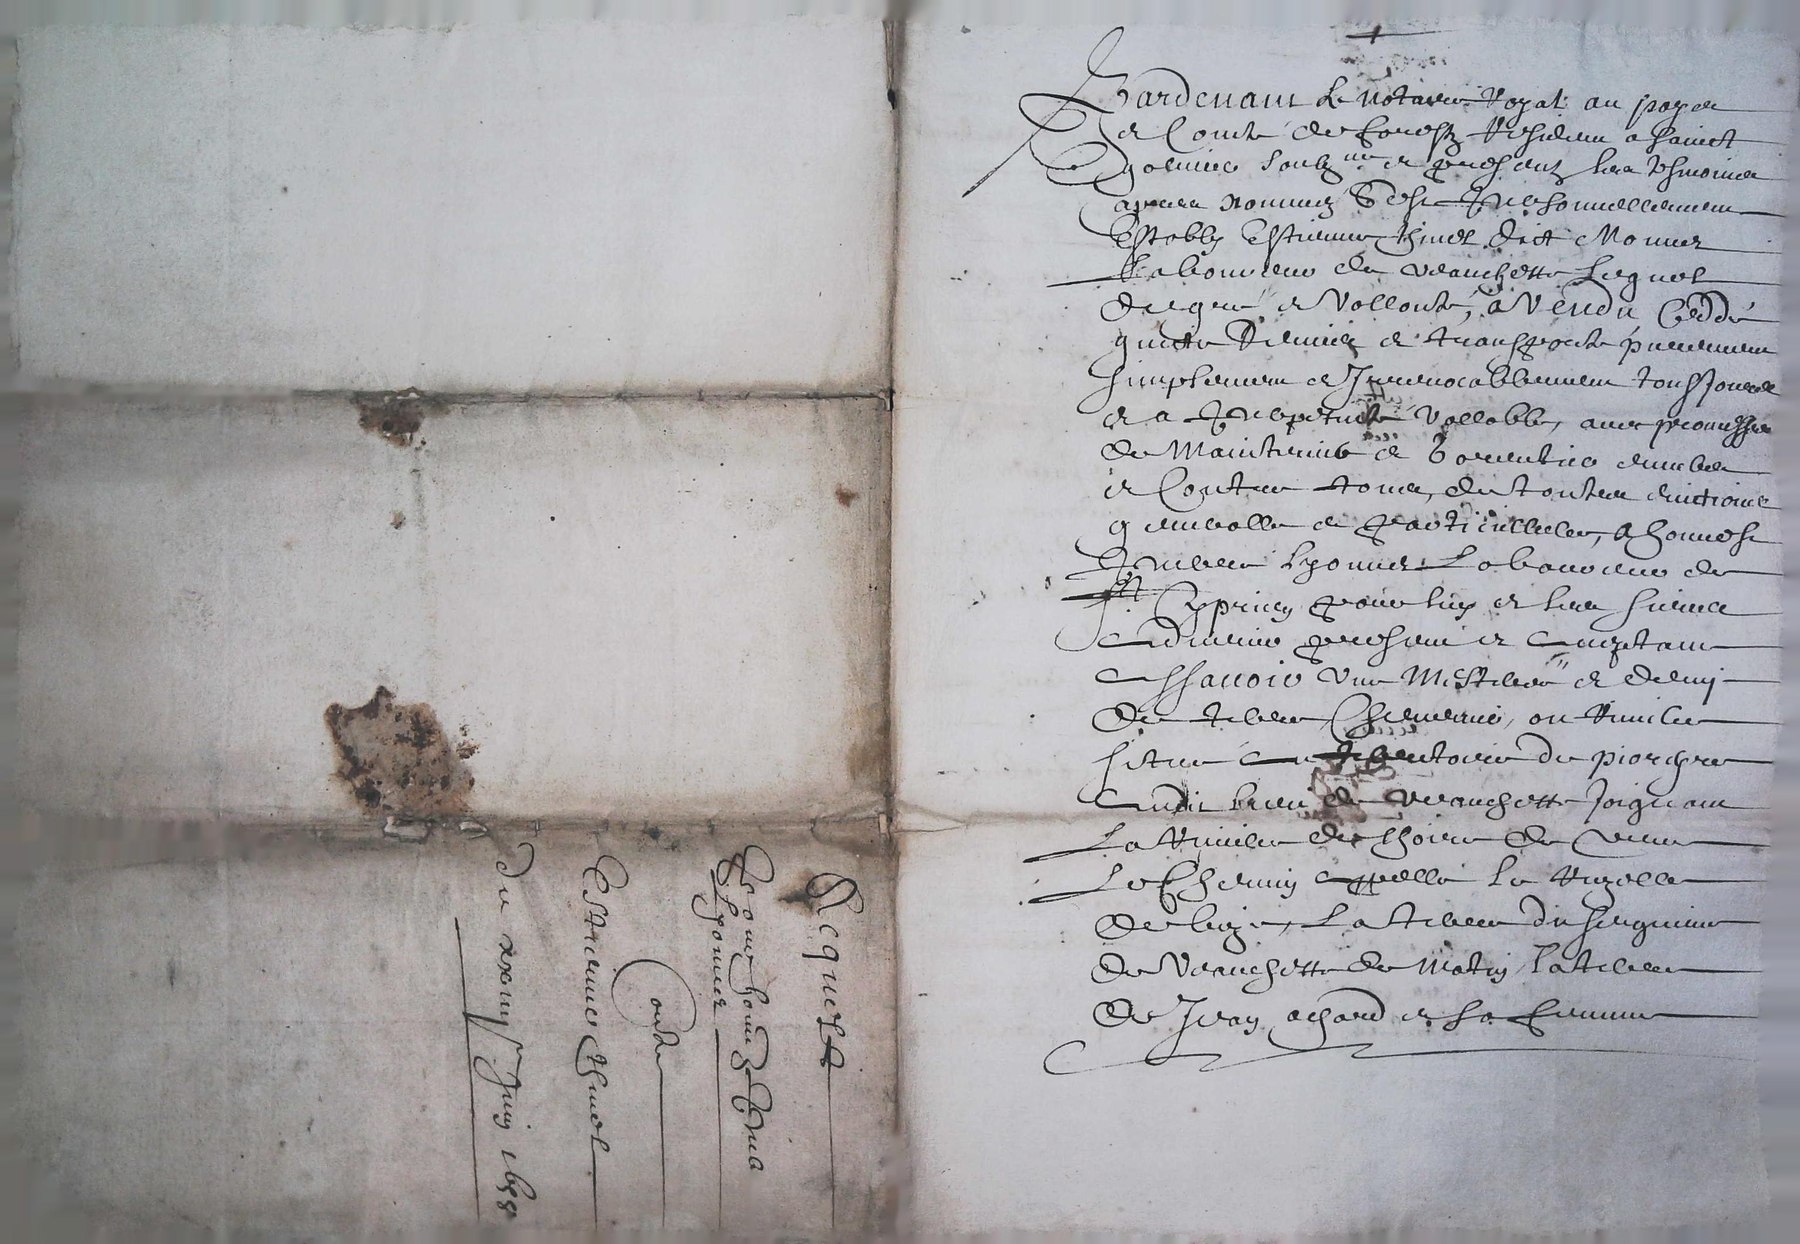 Pardevant le notaire Royal au pays
et Comté de forestz Residant a sainct
galmier soubz.né et presentz les tesmoings
apres nommez S'est personnellement
estably Estienne thivet dict Monier
Laboureur de veauchette Lequel
de gré et Vollonté, a Vendu Ceddé
quitté Remis et transporté purement
simplement et Irrevocablement tousjours
et a perpetuité Vallable, avec promesse
de Maintenir et Garentir envers
et Contre tous, de toutes evictions
generalles et particullieres, a honneste
Lyonnet Laboureur de
St Cyprien pour luy et les siens
present et
assavoir une Mesterée et demy
de terre ou
située au territoire de
audit lieu de veauchette Joignant
La des hoirs de
Le Chemin appellé la
de bize, La terre du seigneur
de Veauchette de Matin, La terre
de Jean achard et sa femme
Requeste
Pour honneste
Lyonnet
Contre
Estienne thivet
du Juing 1658